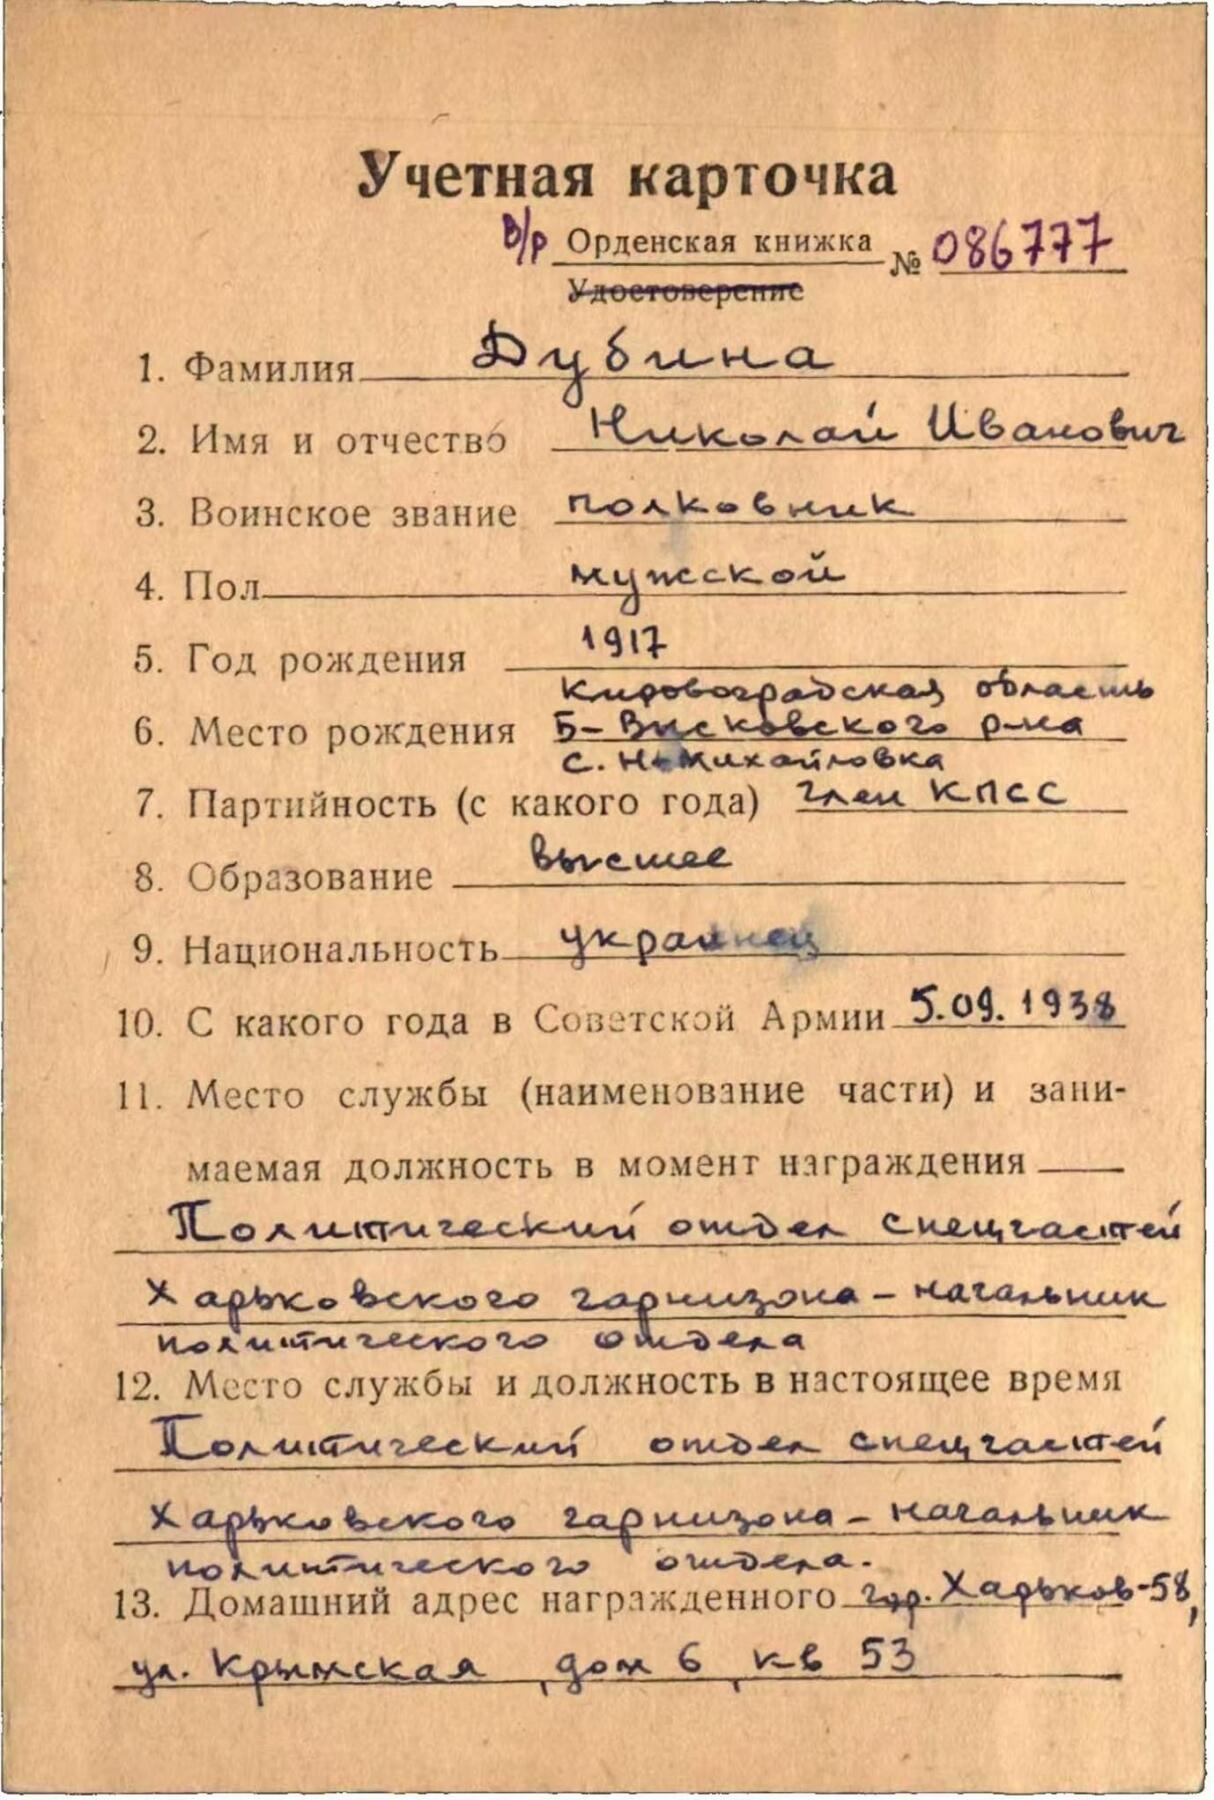 Учетная карточка
В/р Орденская книжка № 086777
Удостоверение
1. Фамилия Дубина
2. Имя и отчество Николай Иванович
3. Воинское звание полковник
4. Пол мужской
5. Год рождения 1917
Кировоградская область
6. Место рождения Б-Висковского р-на
с. Н-Михайловка
7. Партийность (с какого года) член КПСС
8. Образование высшее
9. Национальность украинец
10. С какого года в Советской Армии 5.09.1938
11. Место службы (наименование части) и зани-
маемая должность в момент награждения
Политический отдел спецчастей
Харьковского гарнизона – начальник
политического отдела
12. Место службы и должность в настоящее время
Политический отдел спецчастей
Харьковского гарнизона – начальник
политического отдела.
13. Домашний адрес награжденного гор. Харьков-58,
ул. Крымская, дом 6, кв 53